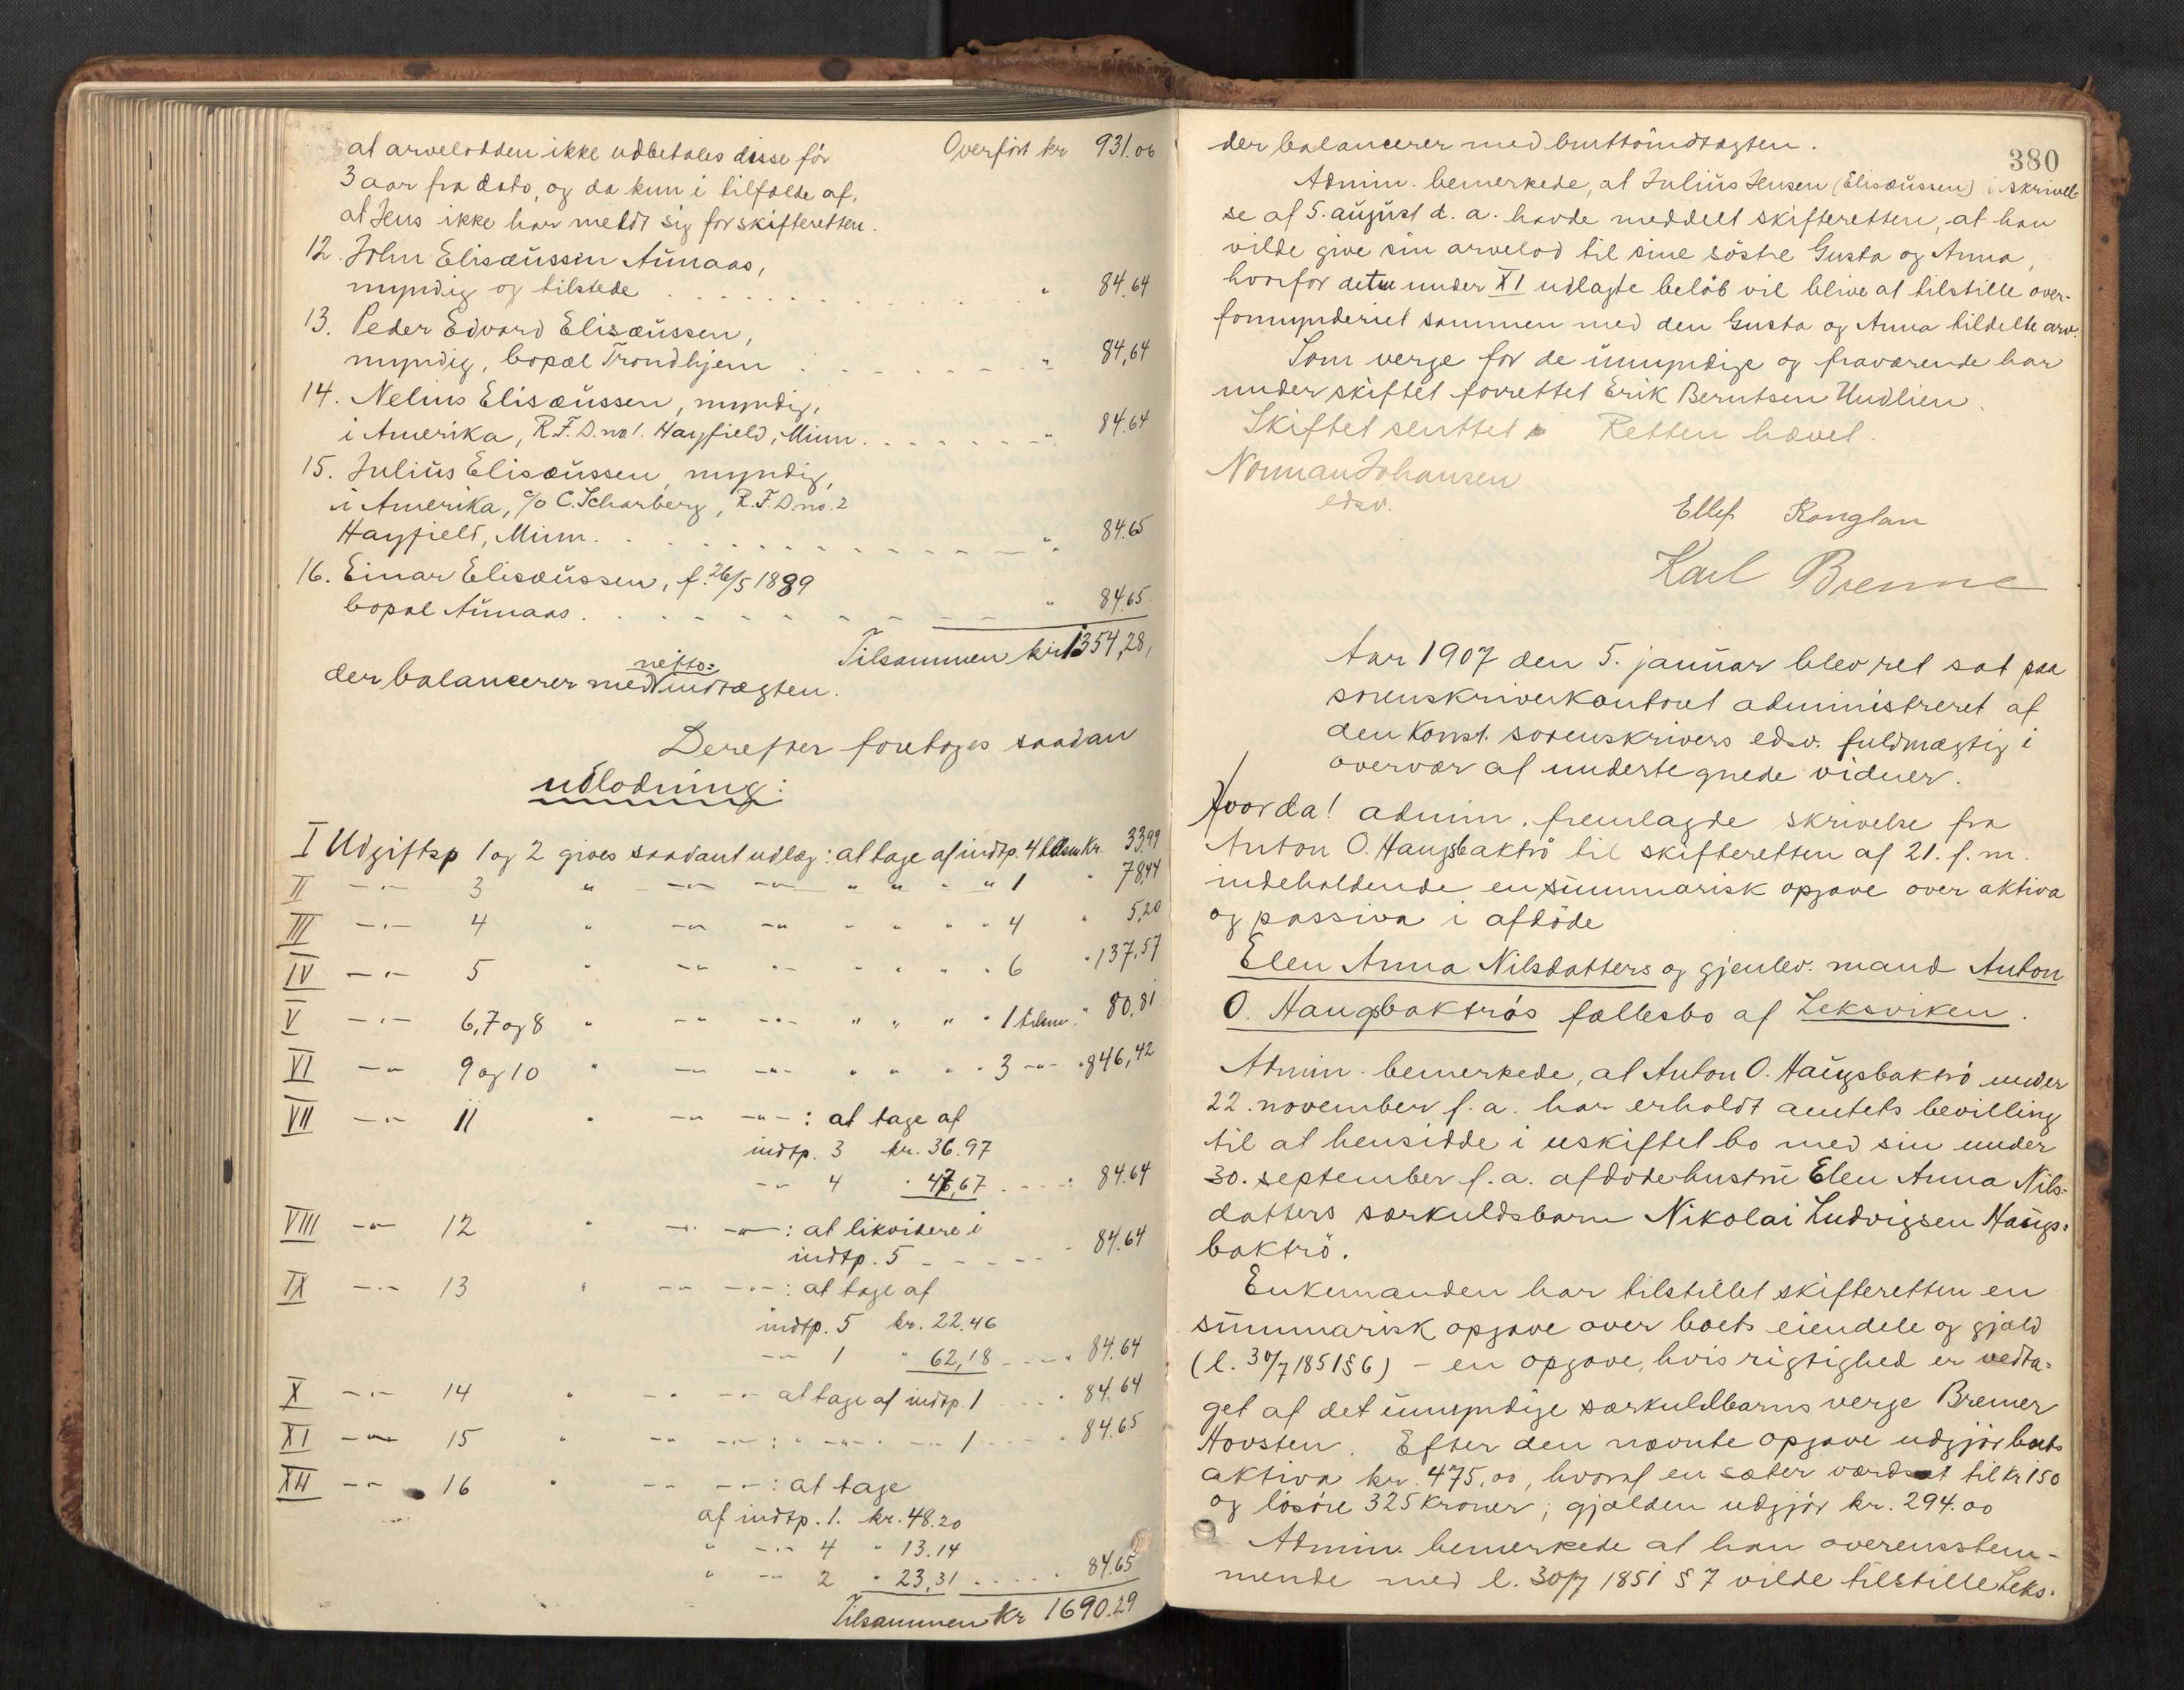 at arvelodden ikke udbetales disse før Overført kr 931.06
3 aar fra dato, og da kun i tilfælde af,
at Jens ikke har meldt sig for skifteretten.
12. John Elisæussen Aunaas,
myndig og tilstede " 84.64
13. Peder Edvard Elisæussen,
myndig, bopæl Trondhjem " 84,64
14. Nelius Elisæussen, myndig,
i Amerika, R.F.D. no 1. Hayfield, Minn. " 84.64
15. Julius Elisæussen, myndig,
i Amerika, c/o C. Scharberg, R.F.D. no. 2
Hayfield, Minn. " 84.65
16. Einar Elisæussen, f. 26/5 1889
bopæl Aunaas. " 84.65
Tilsammen kr 1354,28,
der balancerer med netto-indtægten.
Derefter foretoges saadan
udlodning:
I Udgiftsp 1 og 2 gives saadant udlæg: at tage af indtp. 4 tilsm kr. 33,99
II —"— 3 " —"— —"— " " " " 1 " 78,44
III —"— 4 " —"— —"— " " " " 4 " 5,20
IV —"— 5 " —"— —"— " " " " 6 " 137,57
V —"— 6, 7 og 8 " —"— —"— " " " " 1 tilsm. " 80,81
VI —"— 9 og 10 " —"— —"— " " " " 3 —"— " 846,42
VII —"— 11 " —"— —"—: at tage af
indtp. 3 kr. 36.97
—"— 4 " 47,67 " 84.64
VIII —"— 12 " —"— —"—: at likvidere i
indtp. 5 " 84.64
IX —"— 13 " —"— —"—: at tage af
indtp. 5 kr. 22.46
—"— 1 " 62,18 " 84.64
X —"— 14 " —"— —"— at tage af indtp. 1 " 84.64
XI —"— 15 " —"— —"—: " —"— " —"— 1 " 84.65
XII —"— 16 " —"— —"—: at tage
af indtp. 1. kr. 48.20
" —"— 4 " 13.14
" —"— 2 " 23,31 " 84.65
Tilsammen Kr 1690.29
380
der balancerer med bruttoindtægten.
Admin. bemerkede, at Julius Jensen (Elisæussen) i skrivel-
se af 5. august d. a. havde meddelt skifteretten, at han
vilde give sin arvelod til sine söstre Gusta og Anna,
hvorfor dette under XI udlagte belöb vil blive at tilstille over-
formynderiet sammen med den Gusta og Anna tildelte arv.
Som verge for de umyndige og fraværende har
under skiftet forrettet Erik Berntsen Undlien.
Skiftet sluttet. Retten hævet.
Norman Johansen
edsv.
Ellef Ranglan
Karl Brenne
Aar 1907 den 5. januar blev ret sat paa
sorenskriverkontoret administreret af
den konst. sorenskrivers edsv. fuldmægtig i
overvær af undertegnede vidner.
Hvorda! admin. fremlagde skrivelse fra
Anton O. Haugsbaktrö til skifteretten af 21. f. m.
indeholdende en summarisk opgave over aktiva
og passiva i afdöde
Elen Anna Nilsdatters og gjenlev. mand Anton
O. Haugsbaktrös fællesbo af Leksviken.
Admin. bemerkede, at Anton O. Haugsbaktrö under
22. november f. a. har erholdt amtets bevilling
til at hensidde i uskiftet bo med sin under
30. september f. a. afdøde hustru Elen Anna Nils-
datters særkuldsbarn Nikolai Ludvigsen Haugs-
baktrö.
Enkemanden har tilstillet skifteretten en
summarisk opgave over boets eiendele og gjæld
(l. 30/7 1851 § 6) – en opgave, hvis rigtighed er vedta-
get af det umyndige særkuldbarns verge Bremer
Hovsten. Efter den nævnte opgave udgjör boets
aktiva kr. 475,00, hvoraf en sæter værdsat til kr 150
og lösöre 325 kroner; gjælden udgjör kr. 294.00
Admin. bemerkede at han overensstem-
mende med l. 30/7 1851 § 7 vilde tilstille Leks-